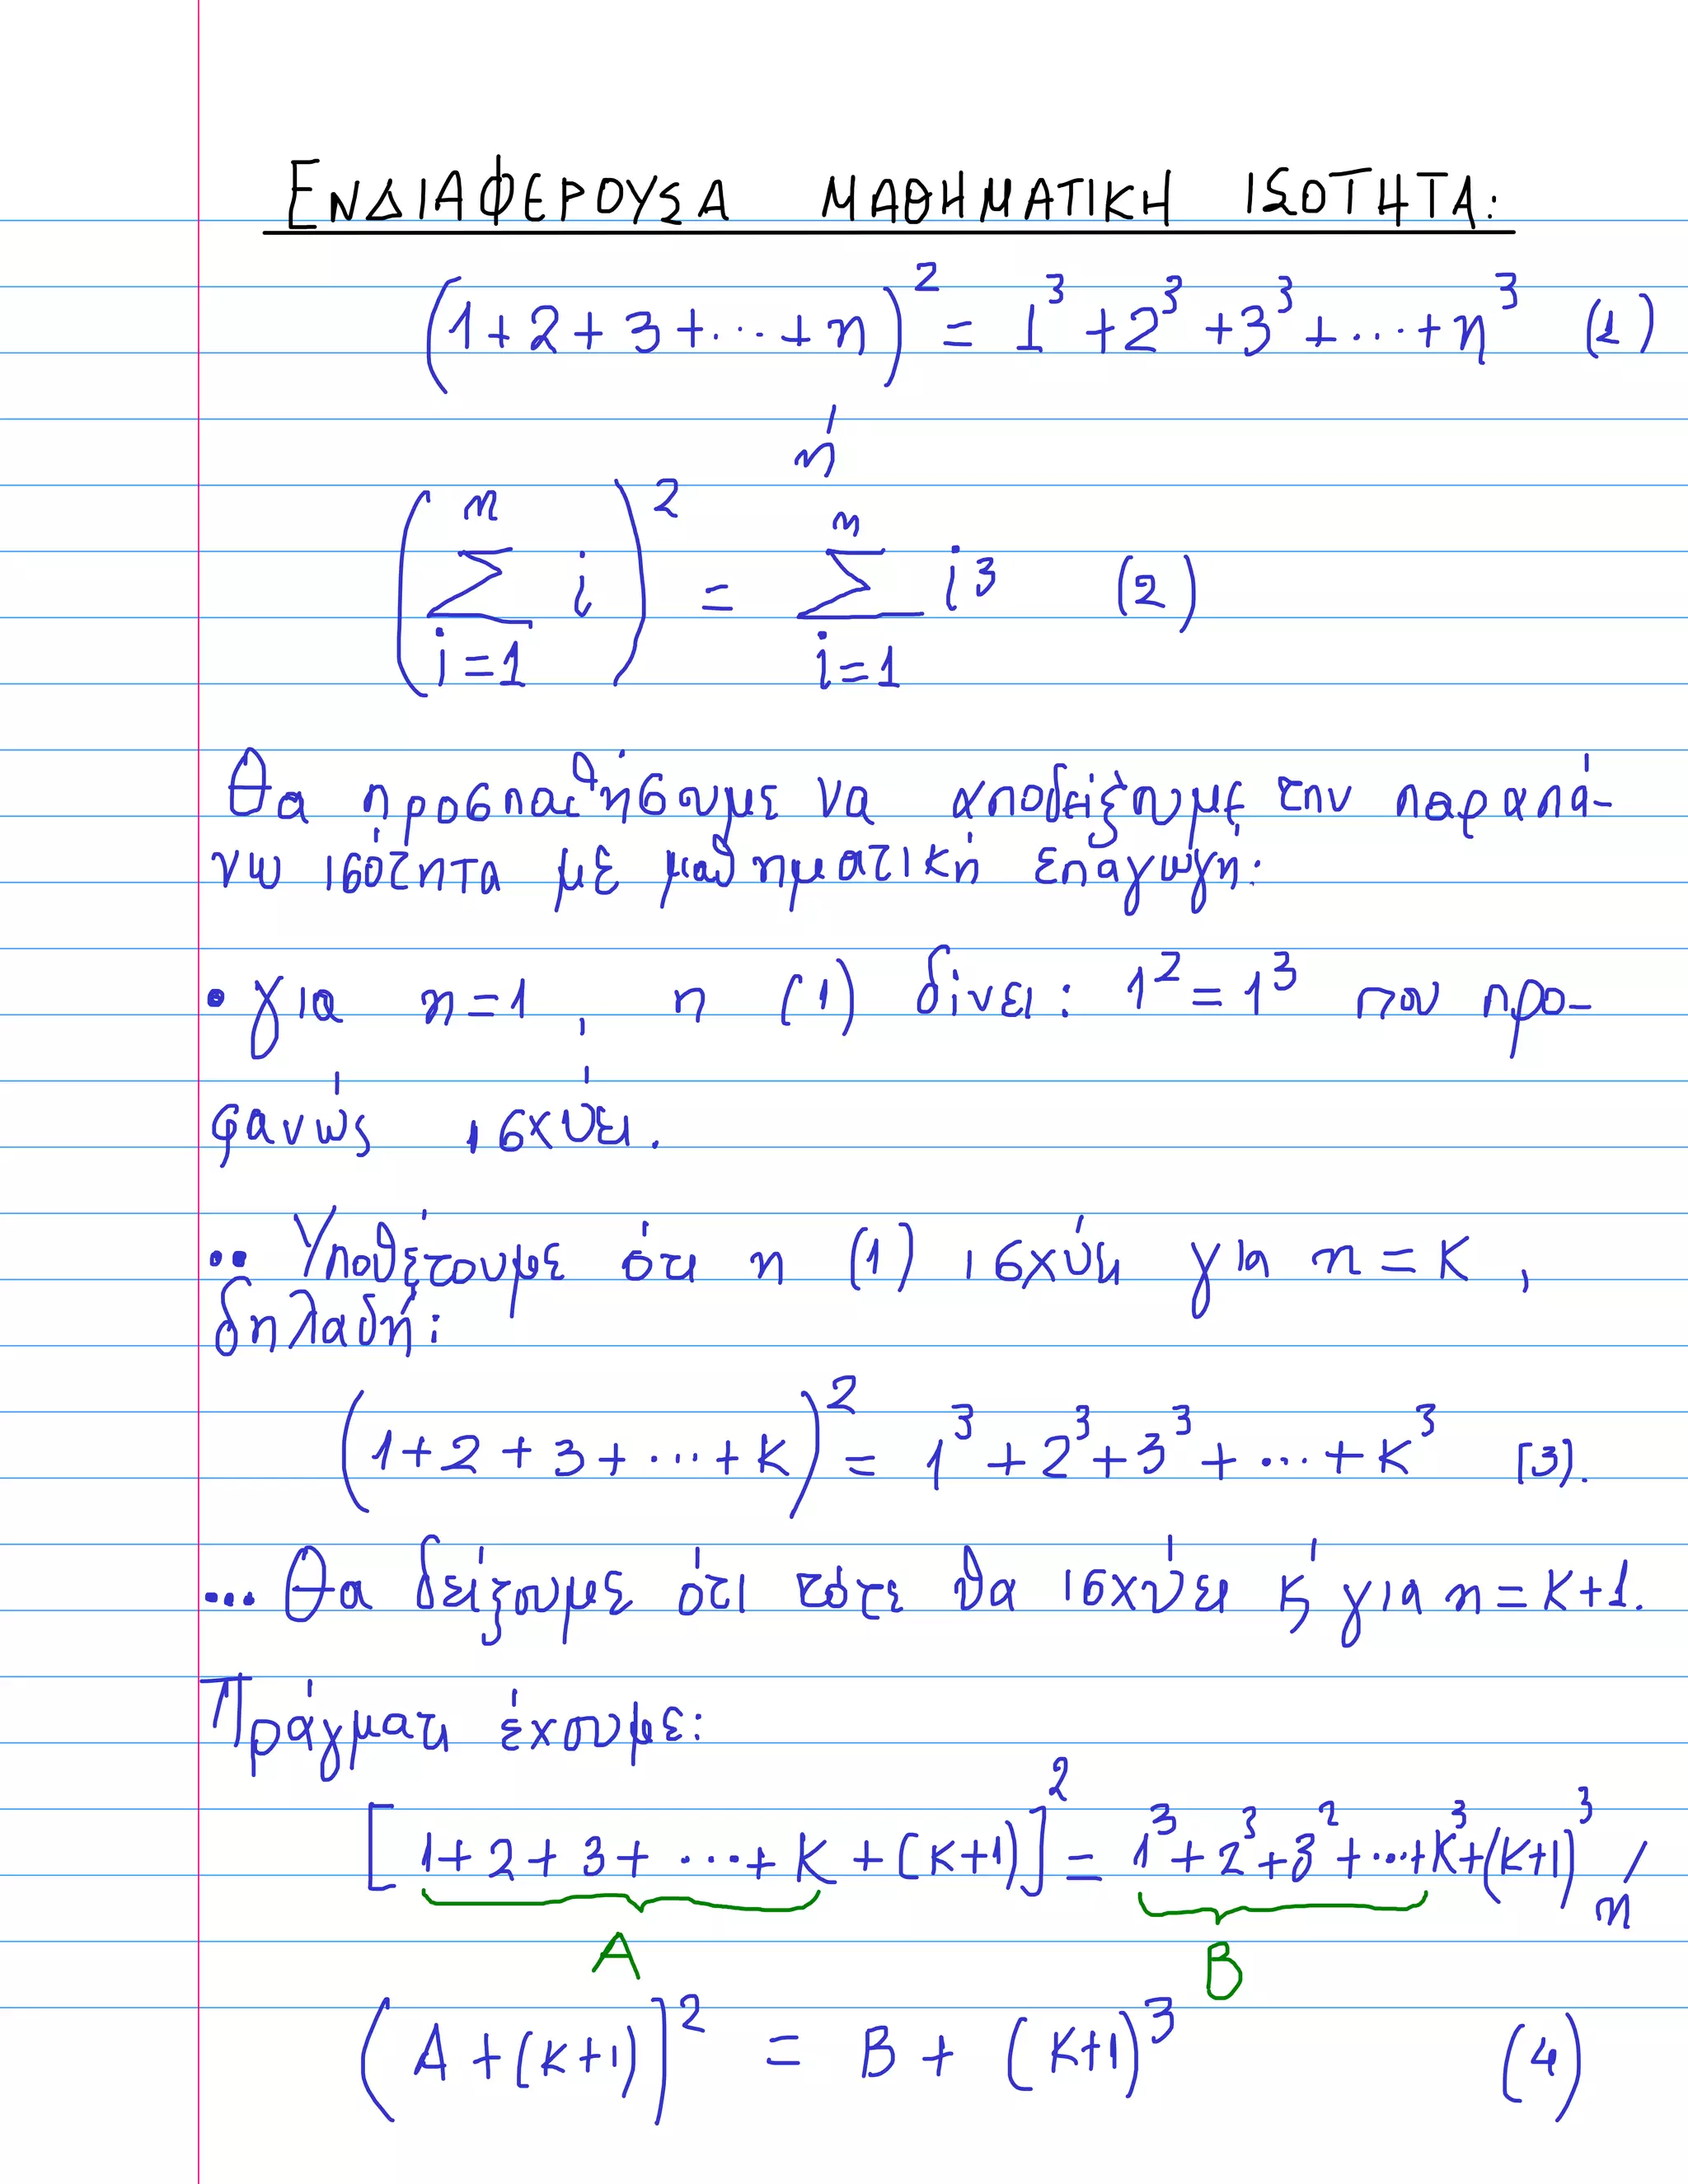 ΕΝΔΙΑΦΕΡΟΥΣΑ ΜΑΘΗΜΑΤΙΚΗ ΙΣΟΤΗΤΑ:
(1+2+3+...+n)² = 1³+2³+3³+...+n³ (1)
ή
(∑_{i=1}^{n} i)² = ∑_{i=1}^{n} i³ (2)
Θα προσπαθήσουμε να αποδείξουμε την παραπά-
νω ισότητα με μαθηματική επαγωγή:
• για n=1, η (1) δίνει: 1²=1³ που προ-
φανώς ισχύει.
•• Υποθέτουμε ότι η (1) ισχύει για n=κ,
δηλαδή:
(1+2+3+...+κ)² = 1³+2³+3³+...+κ³ (3).
••• Θα δείξουμε ότι τότε θα ισχύει ϗ για n=κ+1.
Πράγματι έχουμε:
[1+2+3+...+κ+(κ+1)]² = 1³+2³+3²+...+κ³+(κ+1)³ ή
A B
(A+(κ+1))² = B+(κ+1)³ (4)